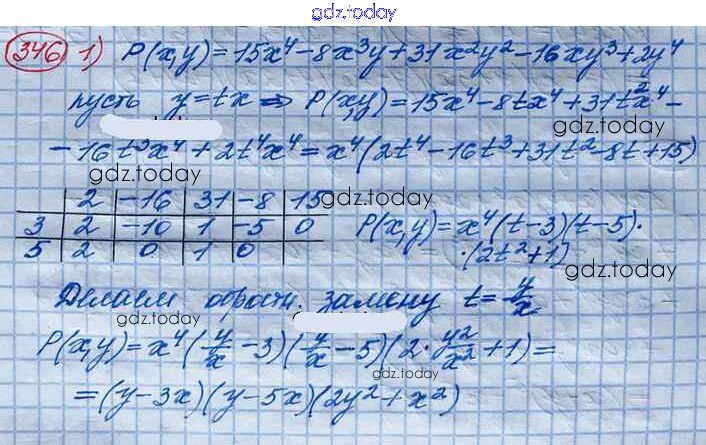 gdz.today
346 1) P(x,y)=15x⁴-8x³y+31x²y²-16xy³+2y⁴
пусть y=tx => P(x,y)=15x⁴-8tx⁴+31t²x⁴-
gdz.today
gdz.today
-16t³x⁴+2t⁴x⁴=x⁴(2t⁴-16t³+31t²-8t+15)
2 -16 31 -8 15
gdz.today
3 2 -10 1 -5 0 P(x,y)=x⁴(t-3)(t-5)·
5 2 0 1 0 ·(2t²+1)
gdz.today
Делаем обратн. замену t=y/x
gdz.today
gdz.today
P(x,y)=x⁴(y/x-3)(y/x-5)(2·y²/x²+1)=
gdz.today
=(y-3x)(y-5x)(2y²+x²)